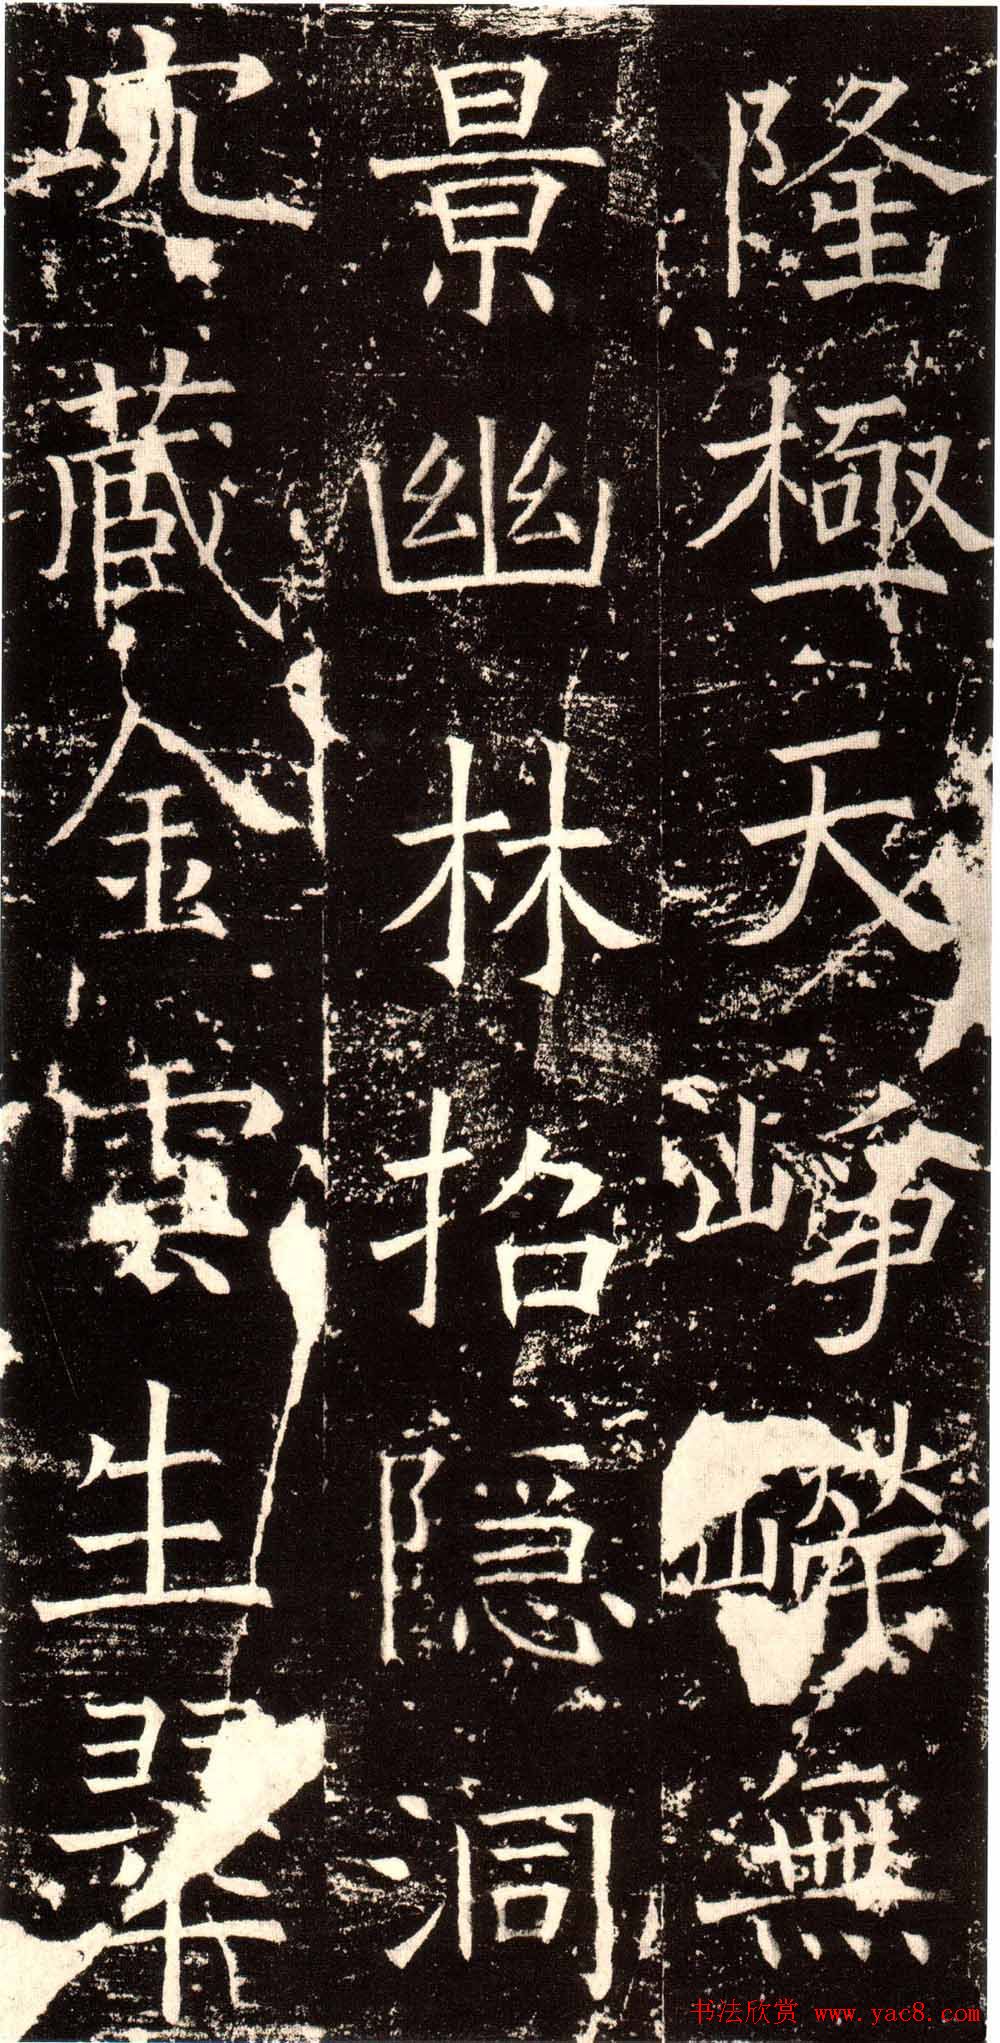 隆極天峥嶸無
景幽林招隐洞
穴藏金雲生翠
书法欣赏 www.yac8.com